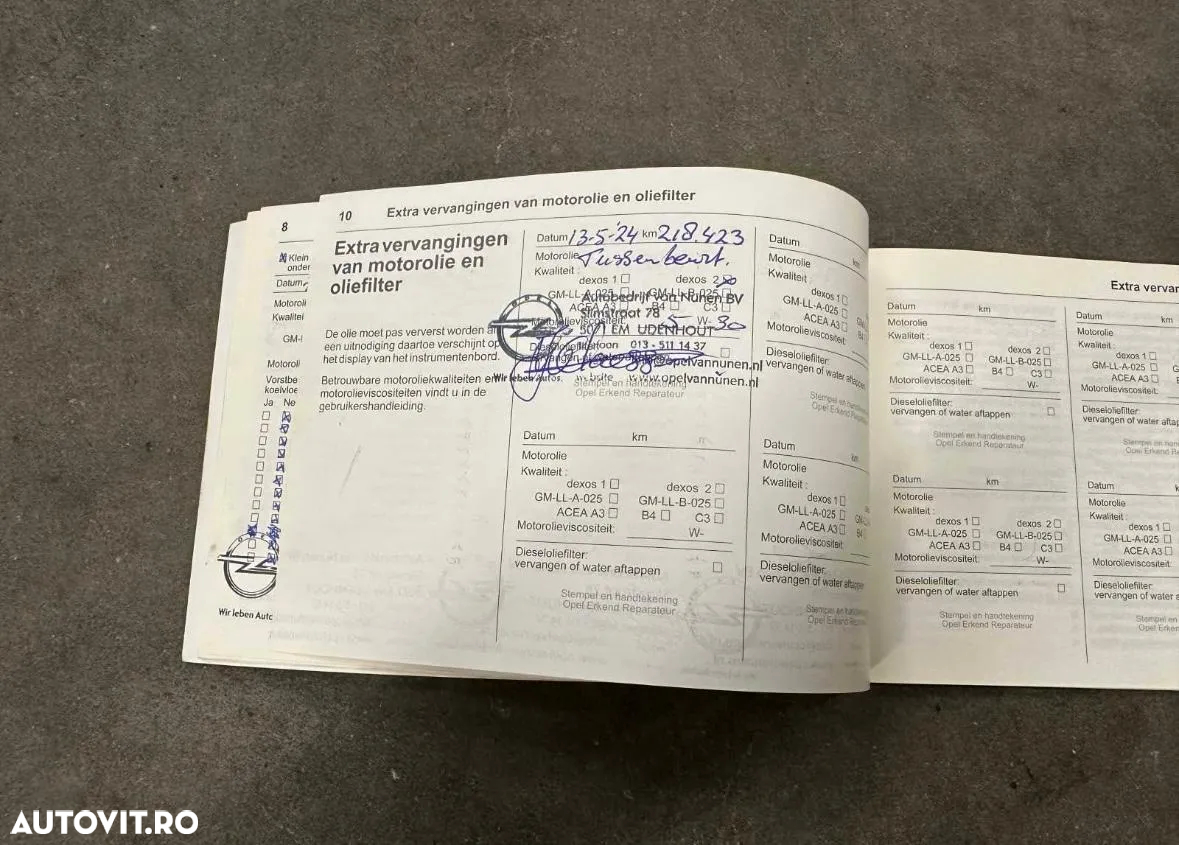 8
Klein
onder
Datum
Motoroli
Kwalitei
GM-l
Motoroli
Vorstbe
koelvloe
Ja Ne
Wir leben Autc
10 Extra vervangingen van motorolie en oliefilter
Extra vervangingen
van motorolie en
oliefilter
De olie moet pas ververst worden als
een uitnodiging daartoe verschijnt op
het display van het instrumentenbord.
Betrouwbare motoroliekwaliteiten en
motorolieviscositeiten vindt u in de
gebruikershandleiding.
Datum 13-5-'24 km 218.423
Motorolie Tussenbeurt.
Kwaliteit :
dexos 1 dexos 2
GM-LL-A-025 GM-LL-B-025
ACEA A3 B4 C3
Motorolieviscositeit: 5 W- 30
OPEL
Autobedrijf van Nunen BV
Slimstraat 78
5071 EM UDENHOUT
013 - 511 14 37
@opelvannunen.nl
Wir leben Autos. website www.opelvannunen.nl
Stempel en handtekening
Opel Erkend Reparateur
Datum km
Motorolie
Kwaliteit :
dexos 1 dexos 2
GM-LL-A-025 GM-LL-B-025
ACEA A3 B4 C3
Motorolieviscositeit:
W-
Dieseloliefilter:
vervangen of water aftappen
Stempel en handtekening
Opel Erkend Reparateur
Datum
km
Motorolie
Kwaliteit :
dexos 1
GM-LL-A-025
ACEA A3
Motorolieviscositeit:
Dieseloliefilter:
vervangen of water aftappen
Stempel en handtekening
Opel Erkend Reparateur
Datum
km
Motorolie
Kwaliteit :
dexos 1
GM-LL-A-025
ACEA A3 B4
Motorolieviscositeit:
Dieseloliefilter:
vervangen of water aftappen
Stempel en handtekening
Opel Erkend Reparateur
Extra vervan
Datum km
Motorolie
Kwaliteit :
dexos 1 dexos 2
GM-LL-A-025 GM-LL-B-025
ACEA A3 B4 C3
Motorolieviscositeit: W-
Dieseloliefilter:
vervangen of water aftappen
Stempel en handtekening
Opel Erkend Reparateur
Datum km
Motorolie
Kwaliteit :
dexos 1 dexos 2
GM-LL-A-025 GM-LL-B-025
ACEA A3 B4 C3
Motorolieviscositeit: W-
Dieseloliefilter:
vervangen of water aftappen
Stempel en handtekening
Opel Erkend Reparateur
Datum
Motorolie
Kwaliteit :
dexos 1
GM-LL-A-025
ACEA A3
Motorolieviscositeit:
Dieseloliefilter:
vervangen of water aftap
Stempel en han
Opel Erkend R
Datum
Motorolie
Kwaliteit :
dexos 1
GM-LL-A-025
ACEA A3
Motorolieviscositeit:
Dieseloliefilter:
vervangen of water
Stempel e
Opel Erken
AUTOVIT.RO